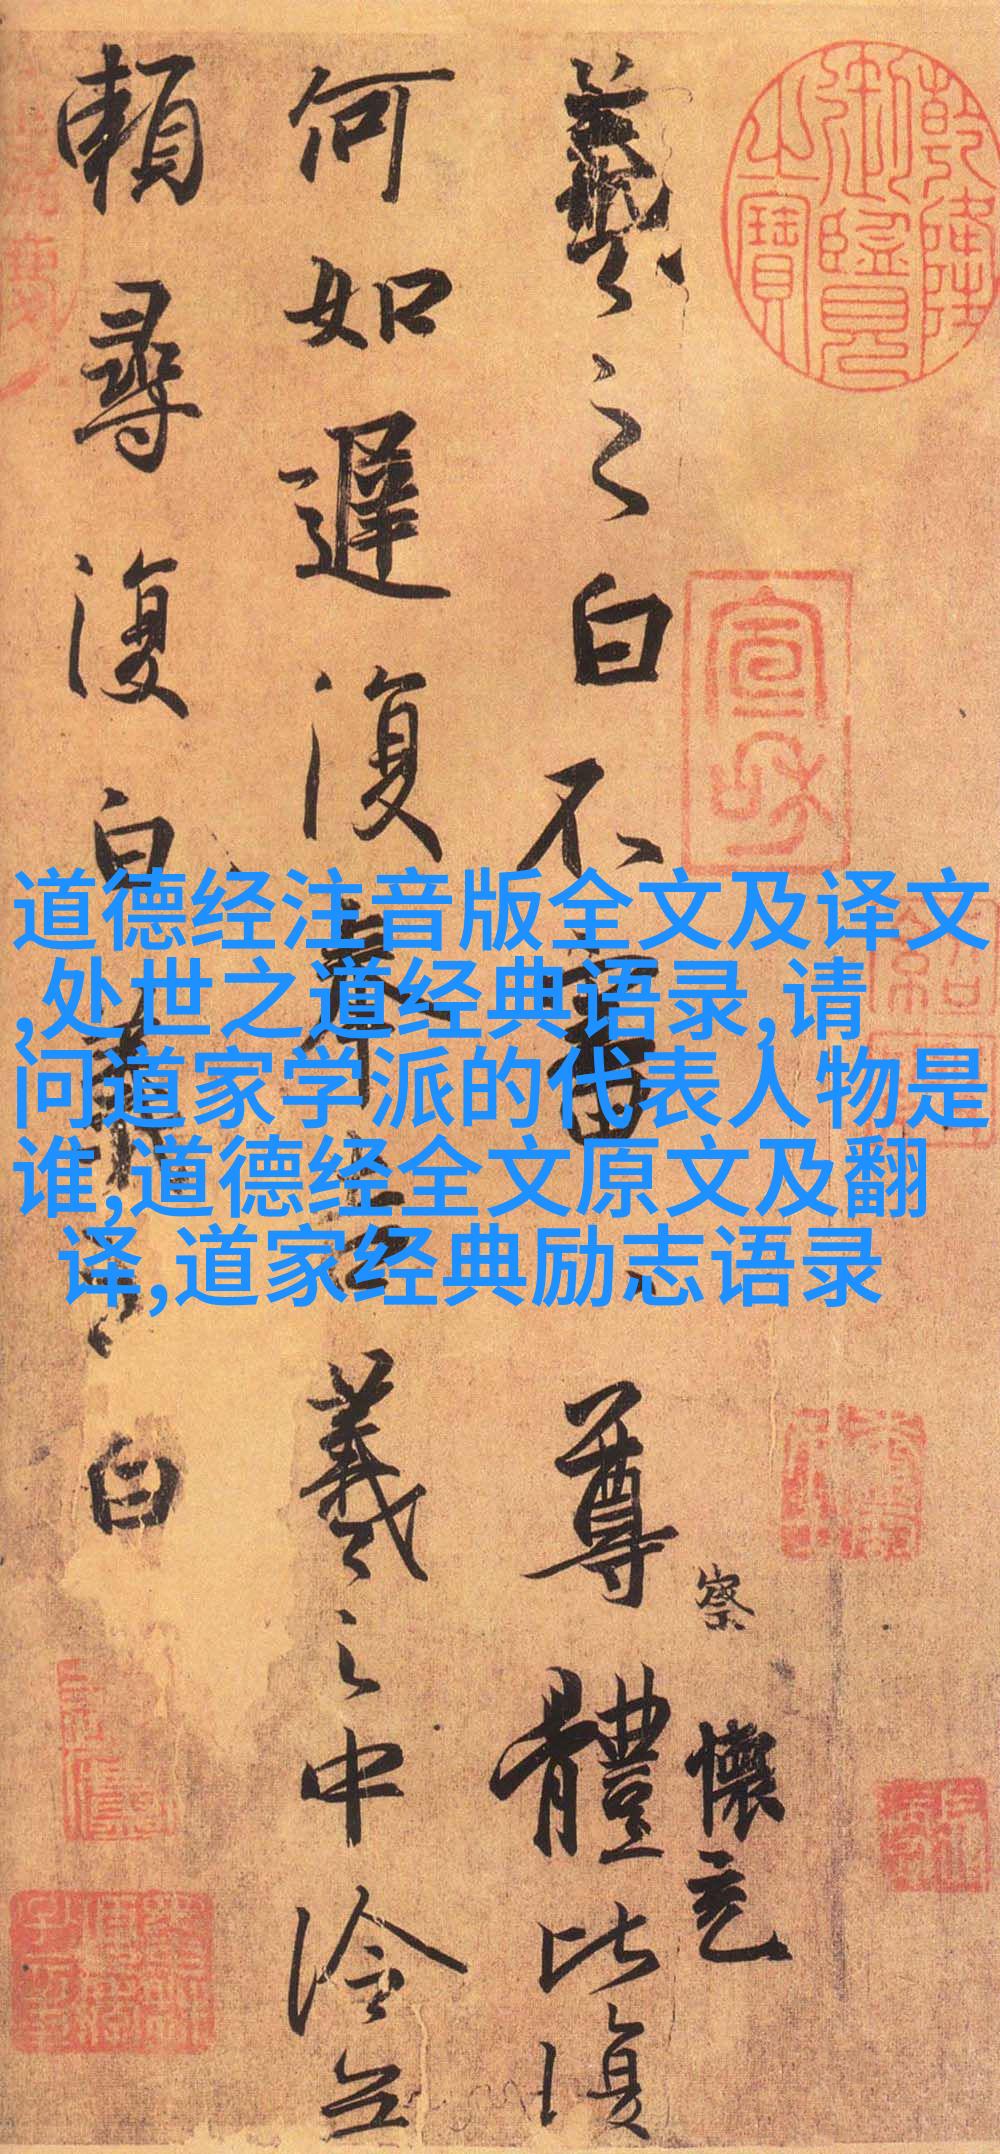 乾隆御覽之寶
宣和
察
懷充
羲之白不審尊體比復
何如遲復奉告羲之中冷無
賴尋復白羲之白
道德经注音版全文及译文
,处世之道经典语录,请
问道家学派的代表人物是
谁,道德经全文原文及翻
译,道家经典励志语录